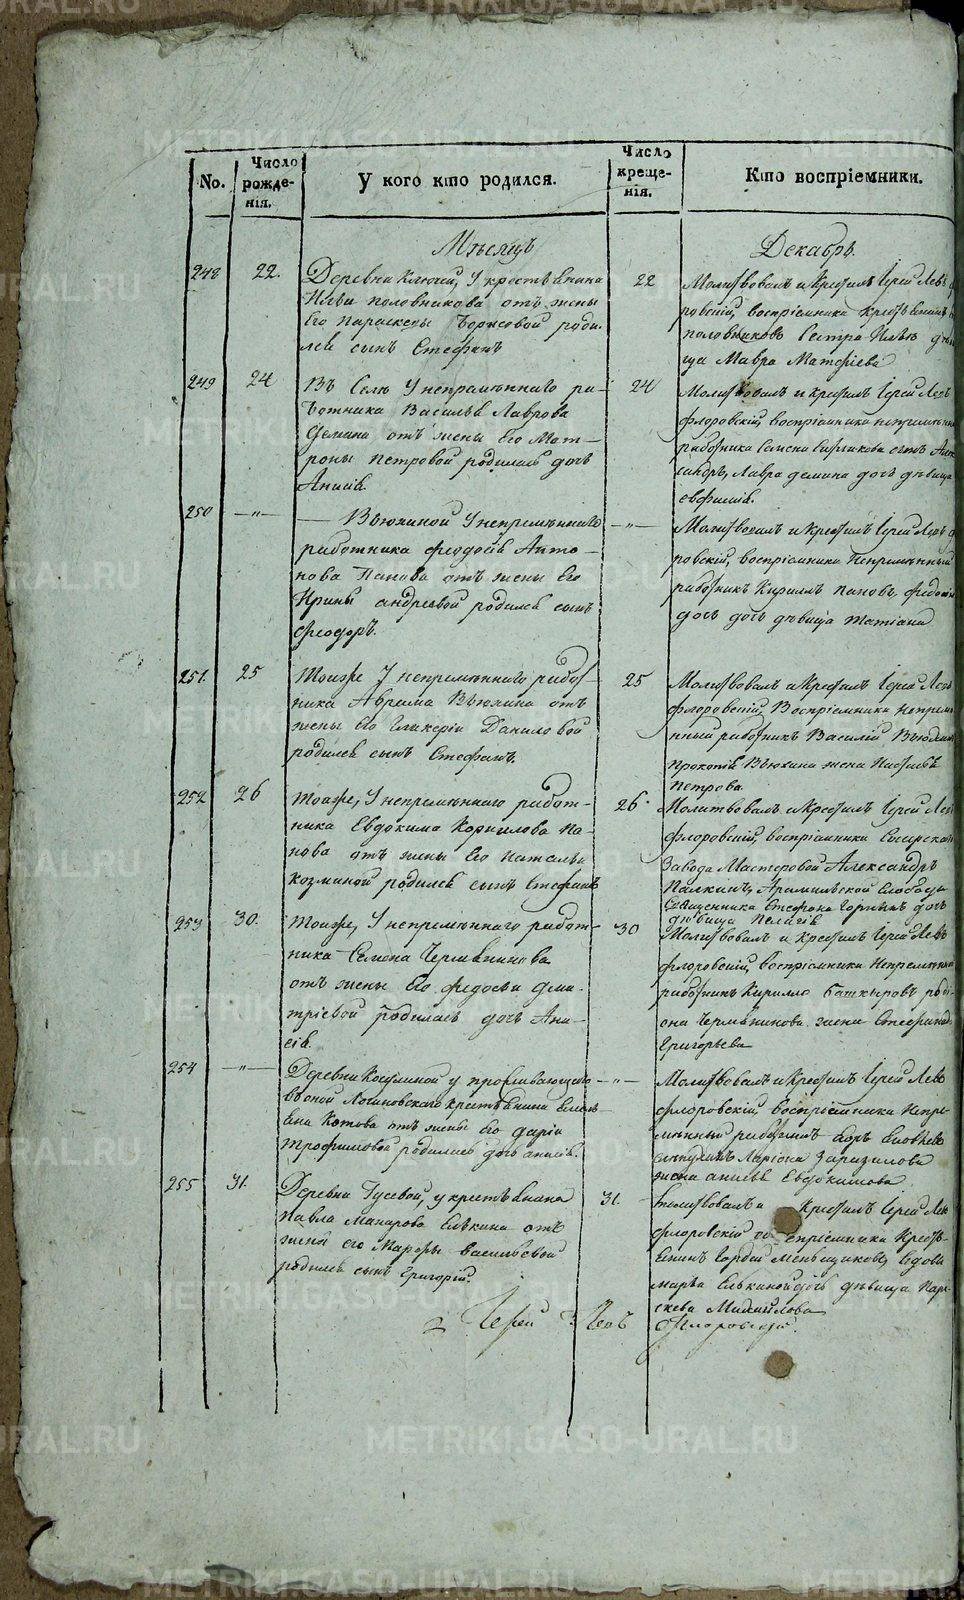 No.
Число рожде-нія.
У кого кто родился.
Число креще-нія.
Кто воспріемники.
Мѣсяцъ
Декабрь.
248
22.
Деревни Ключей, у крестьянина
Ильи Половникова отъ жены
Его Параскевы Борисовой роди-
лся сынъ Стефанъ
22
Молитвовалъ и крестилъ Іерей Левъ
ровскій, воспріемники крестьянинъ
половниковъ
ца Мавра Матфіева
249
24
Въ Селѣ У непремѣннаго ра-
ботника Василья Лаврова
Демина отъ жены Его Мат-
роны Петровой родилась дочь
Анисія.
24
Молитвовалъ и крестилъ Іерей Левъ
флоровскій, воспріемники непремѣн
работника
Лавра демина дочь дѣвица
евфимія.
250
—"—
— Вьюхиной У непремѣннаго
работника феодосія Анто-
нова Панова отъ жены Его
Ирины андреевой родился сынъ
феодоръ.
—"—
Молитвовалъ и крестилъ Іерей Левъ ф
ровскій, воспріемники Непремѣнный
работникъ Кирилъ пановъ,
дочь дѣвица татіана
251.
25
Тоаже У непремѣннаго работ-
ника Аврама Вьюхина отъ
жены Его Гликеріи Даниловой
родился сынъ Стефанъ.
25
Молитвовалъ и крестилъ Іерей Левъ
флоровскій, Воспріемники Непремѣ
нный работникъ Василій Вьюхинъ
прокопія Вьюхина жена
петрова
252
26
тоаже, У непремѣннаго работ-
ника Евдокима Корнилова Па-
нова отъ жены Его Натальи
козминой родился сынъ Стефанъ
26.
Молитвовалъ и крестилъ Іерей Лев
флоровскій, воспріемники Сысерскаго
Завода Мастеровой Александръ
Палкинъ, Арамильской Слободы
Священника Стефана дочь
дѣвица Пелагія
253
30.
тоаже, У непремѣннаго работ-
ника Семена Чермянинова
отъ жены Его федосьи дми-
тріевой родилась дочь Ани-
сія.
30
Молитвовалъ и крестилъ Іерей Левъ
флоровскій, воспріемники Непремѣнный
работникъ Кирилло Башкыровъ роді-
она Чермянинова жена Стефанида
Григорьева
254
—"—
Деревни Косминой у проживающаго
въ оной Логиновскаго крестьянина
Котова отъ жены Его даріи
трофимовой родилась дочь анисія.
—"—
Молитвовалъ и крестилъ Іерей Левъ
флоровскій воспріемники Непре-
мѣнный работникъ
Ларіона
жена Евдокимова
255
31.
Деревни Гусевой, у крестьянина
Павла Макарова Елькина отъ
жены его Марфы васильевой
родился сынъ Григорій.
31.
молитвовалъ и крестилъ Іерей Лев
флоровскій воспріемники Кресть-
янинъ Гордѣй меньщиковъ, вдовы
марьи Елькиной дочь дѣвица Пара-
скева Михайлова
Іерей Левъ
флоровскій.
METRIKI.GASO-URAL.RU